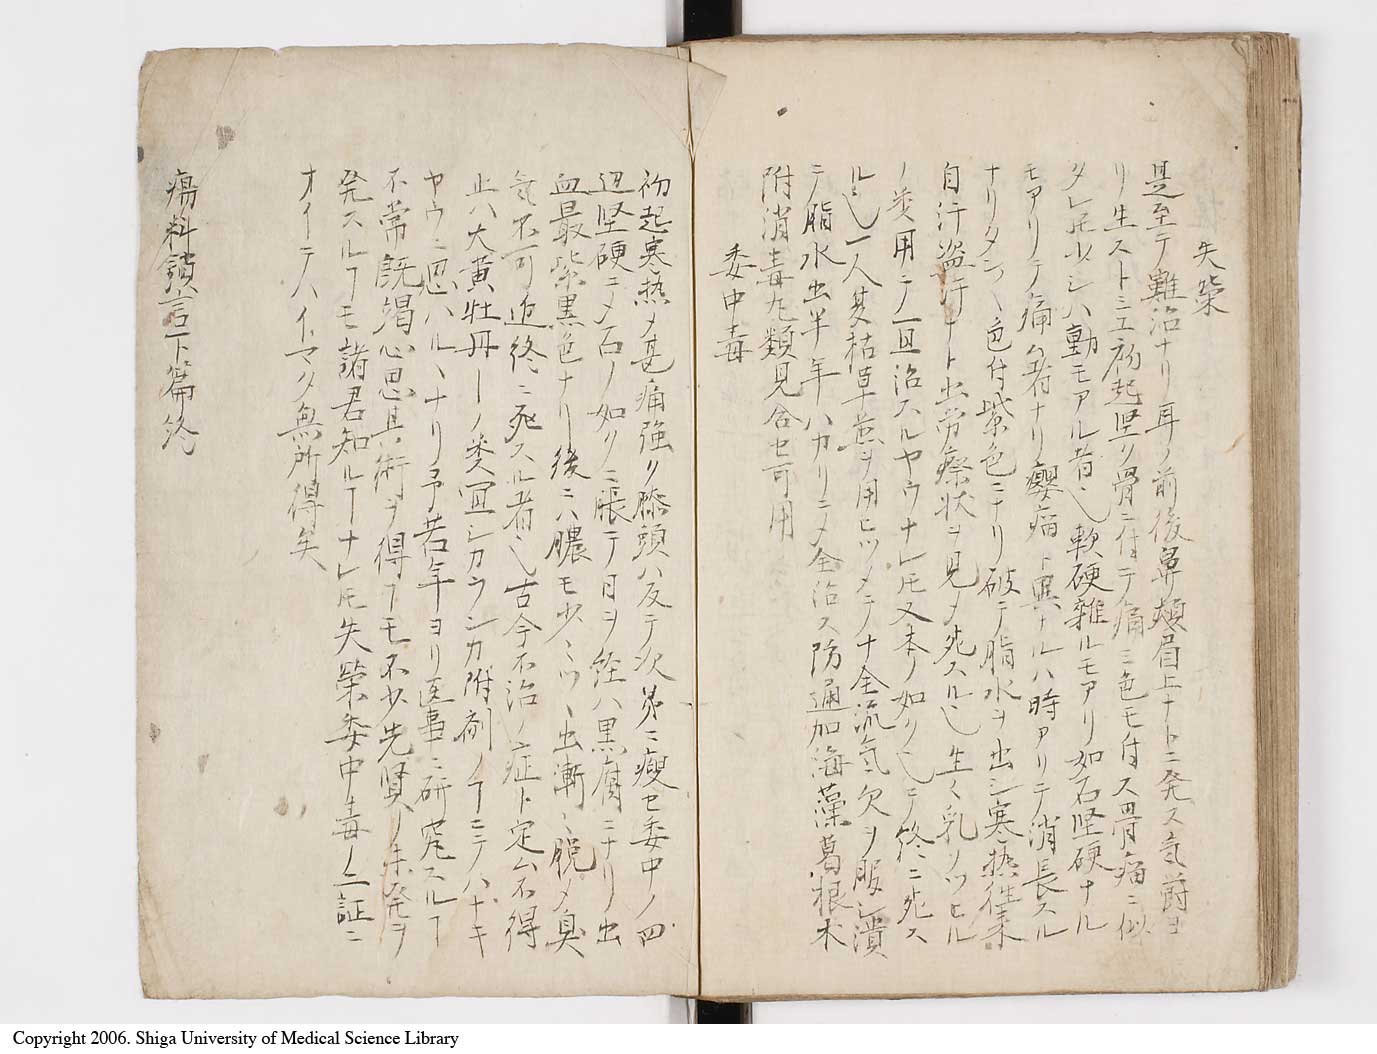 失榮
是至テ難治ナリ耳ノ前後鼻頬眉上ナトニ発ス気欝ヨ
リ生ストミエ初起堅ク骨ニ付テ痛ミ色モ付ス骨痛ニ似
タレ𪜈少シハ動モアル者乀軟硬雑ルモアリ如石堅硬ナル
モアリテ痛ム者ナリ瘿痛ト異ナルハ時アリテ消長スル
ナリタ乀色付紫色ニナリ破テ脂水ヲ出シ寒熱往来
自汗盗汗ナト出労瘵状ヲ見メ死スル乀生ク乳ノツヒル
ノ類用テ一旦治スルヤウナレ𪜈又本ノ如ク乀テ終ニ死ス
ル乀一人夏枯草煎ヲ用ヒツメテ十全流気ニ欠ヲ服シ潰
テ脂水出半年ハカリニメ全治ス防通加海藻葛根木
附消毒丸類見合セ可用
委中毒
初起寒熱メ甚痛強ク膝頭ハ反テ次第ニ瘦セ委中ノ四
辺堅硬ニメ石ノ如クニ脹テ日ヲ経ハ黒腐ニナリ出
血最紫黒色ナリ後ニハ膿モ少〻ツヽ出漸〻脱メ臭
気不可近終ニ死スル者乀古今不治ノ症ト定ム不得
止ハ大黄牡丹ーノ類宜シカラシカ附剤ノヿニテハナキ
ヤウニ思ハルヽナリ予若年ヨリ医事ニ研究スルヿ
不常既竭心思其術ヲ得ヿモ不少先賢ノ未発ヲ
発スルヿモ諸君知ルヿナレ𪜈失榮委中毒ノ二証ニ
オイテハイマタ無所得矣
瘍科鎖言下篇終
Copyright 2006. Shiga University of Medical Science Library